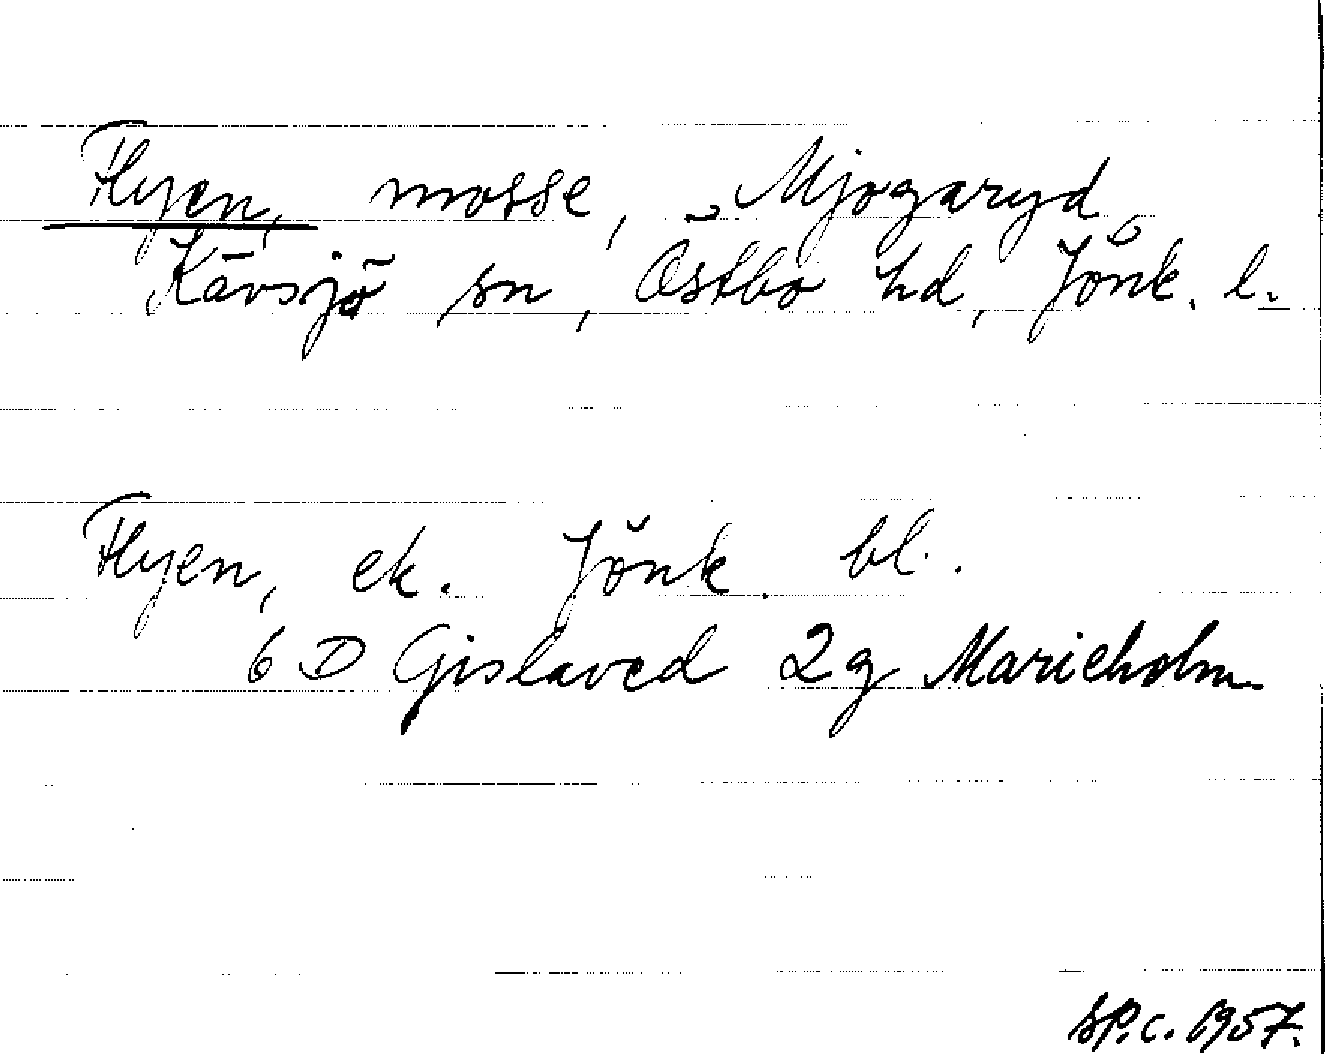 Flyen, mosse, Mjogaryd,
Kävsjö sn, Östbo hd, Jönk. l.
Flyen, ek. Jönk. bl.
6 D Gislaved 2g Marieholm
1957.